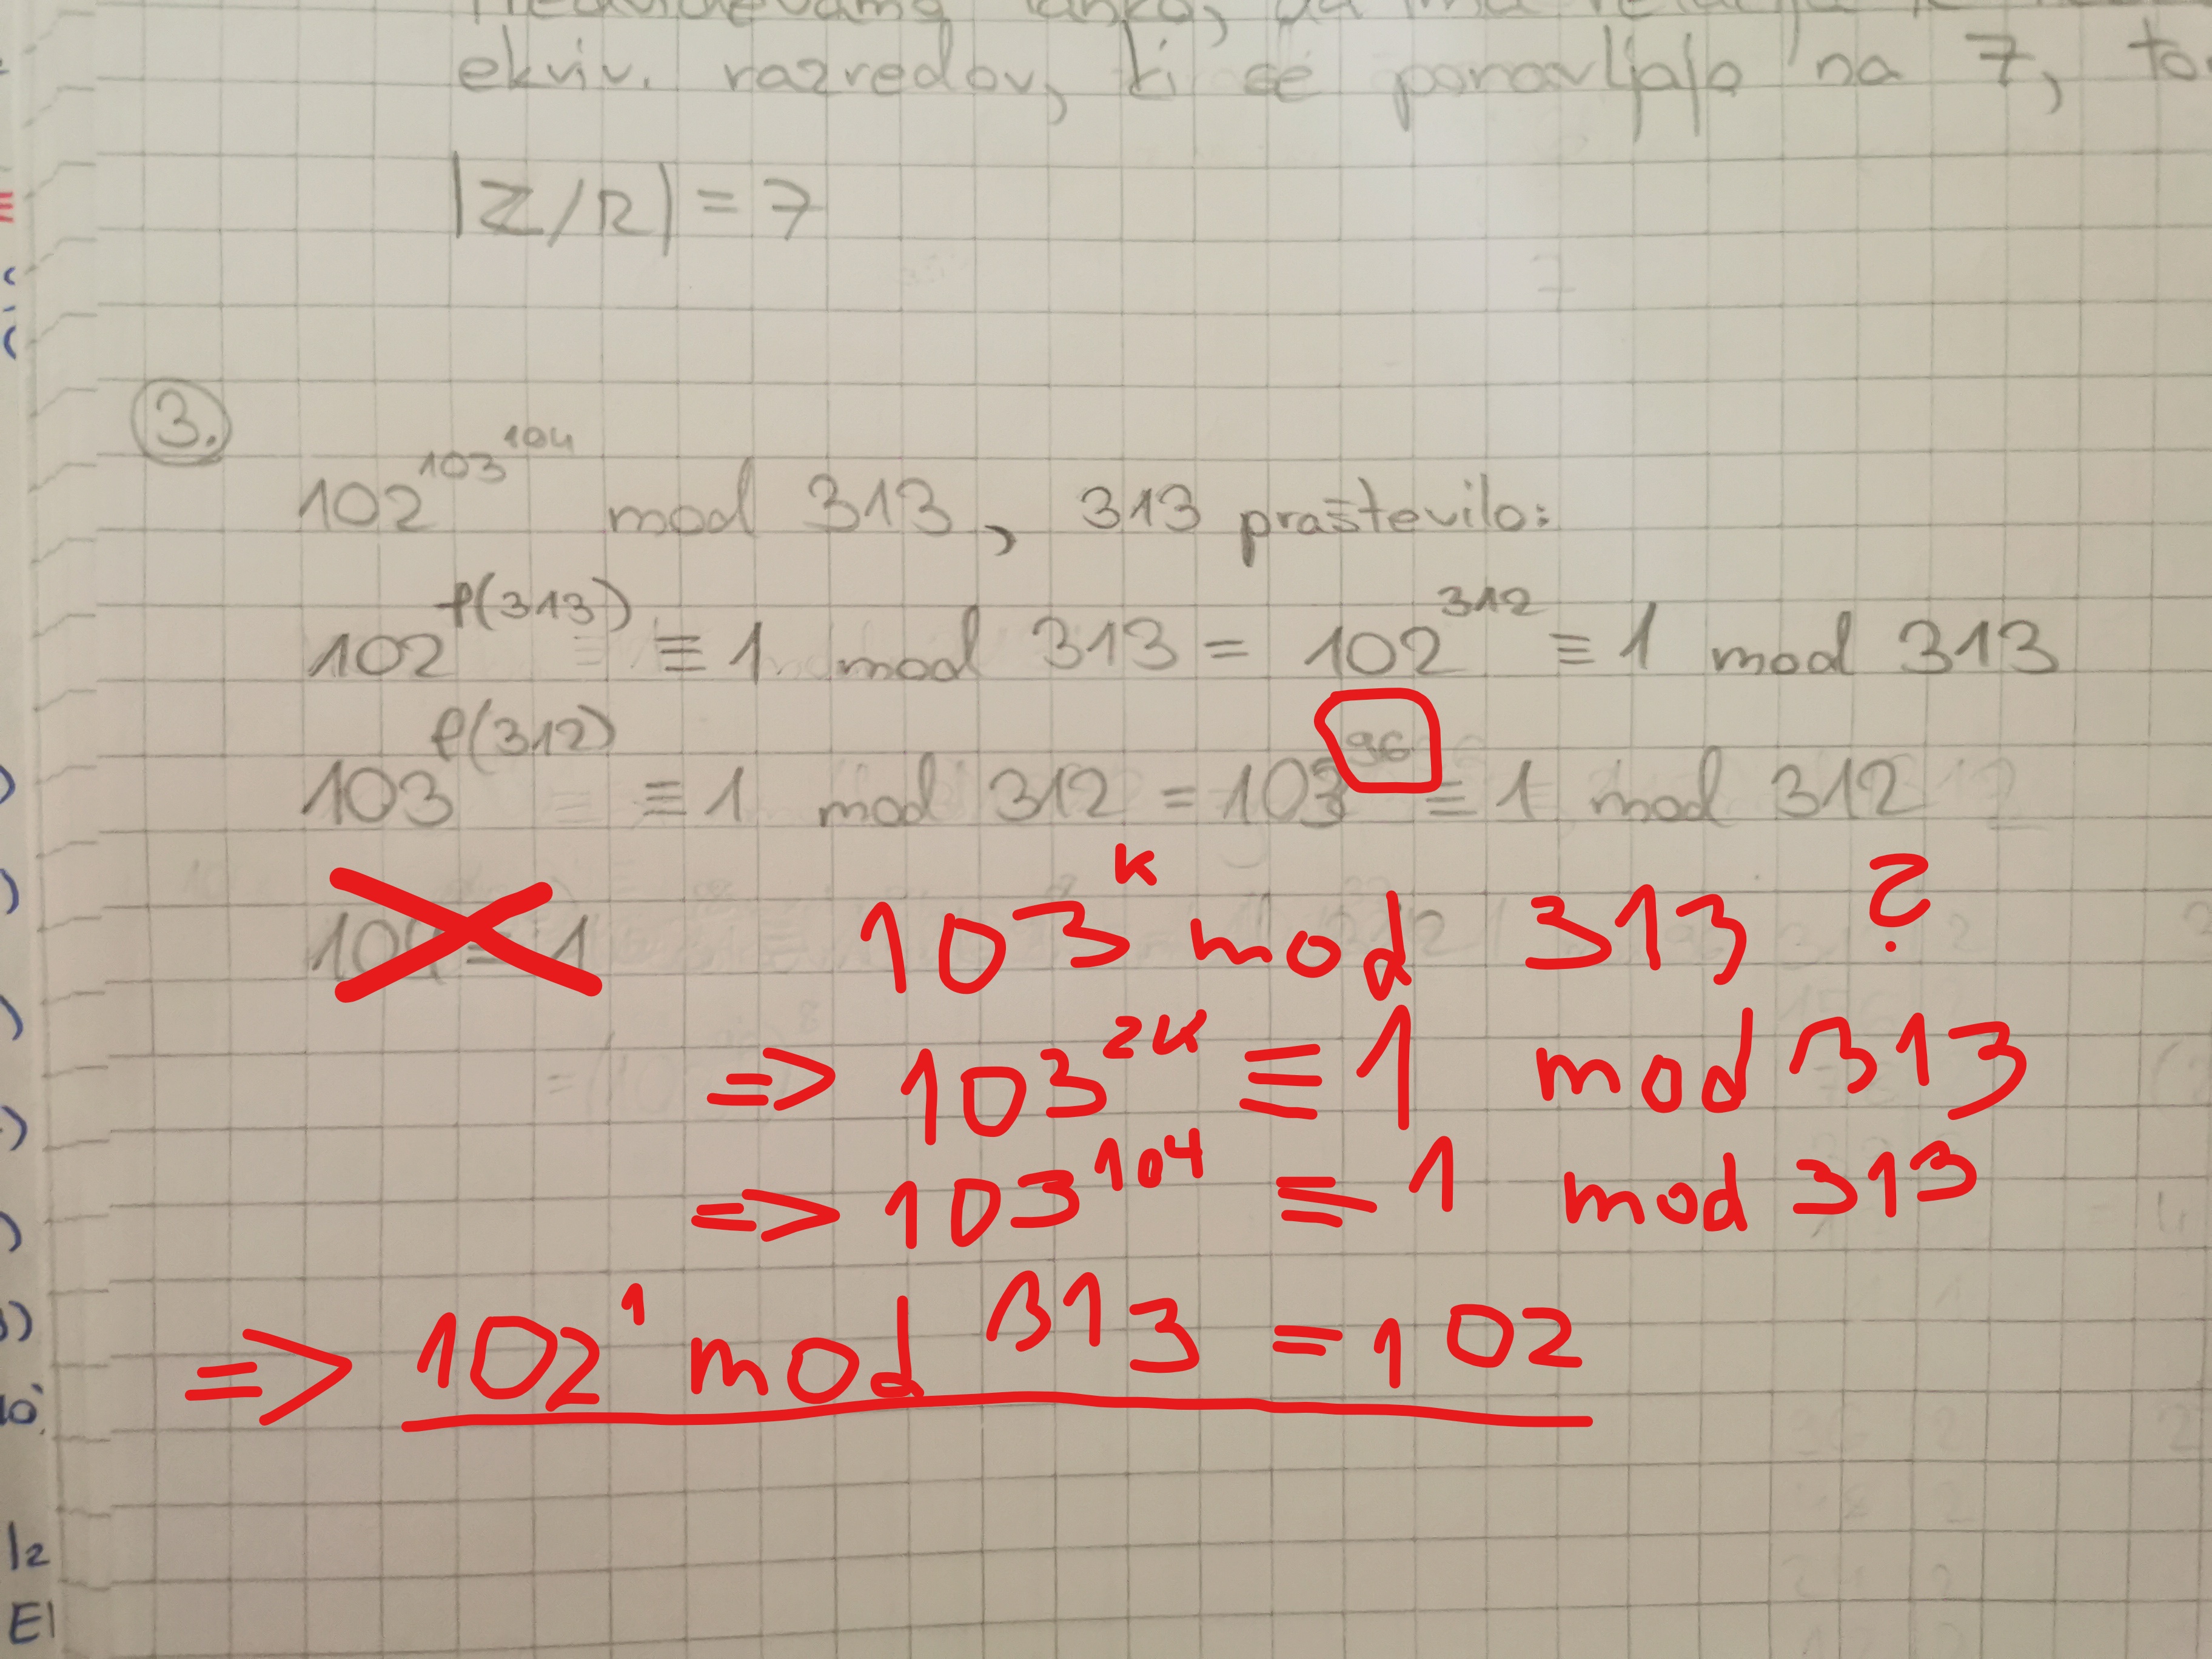 ekviv. razredov, ki se ponavljajo na 7,
|Z/R| = 7
3.
102^103^104 mod 313, 313 praštevilo:
102^φ(313) ≡ 1 mod 313 = 102^312 ≡ 1 mod 313
103^φ(312) ≡ 1 mod 312 = 103^96 ≡ 1 mod 312
103^k mod 313 ?
=> 103^2k ≡ 1 mod 313
=> 103^104 ≡ 1 mod 313
=> 102^1 mod 313 = 102